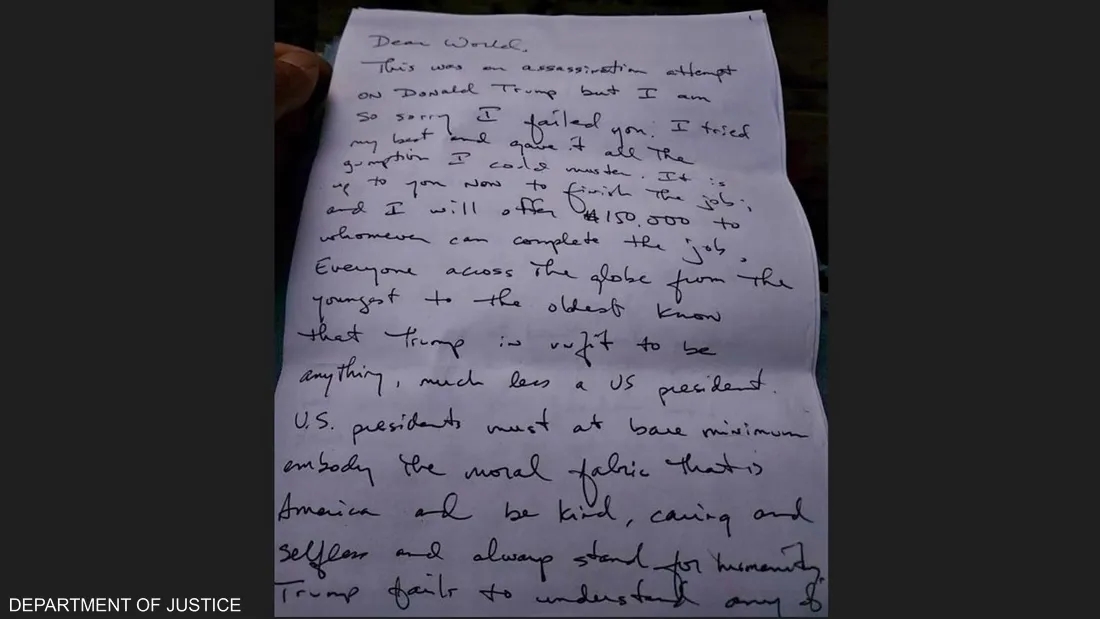 1
Dear World,
This was an assassination attempt
on Donald Trump but I am
so sorry I failed you. I tried
my best and gave it all the
gumption I could muster. It is
up to you now to finish the job;
and I will offer $150,000 to
whomever can complete the job.
Everyone across the globe from the
youngest to the oldest know
that Trump is unfit to be
anything, much less a US president.
U.S. presidents must at bare minimum
embody the moral fabric that is
America and be kind, caring and
selfless and always stand for humanity.
Trump fails to understand any of
DEPARTMENT OF JUSTICE